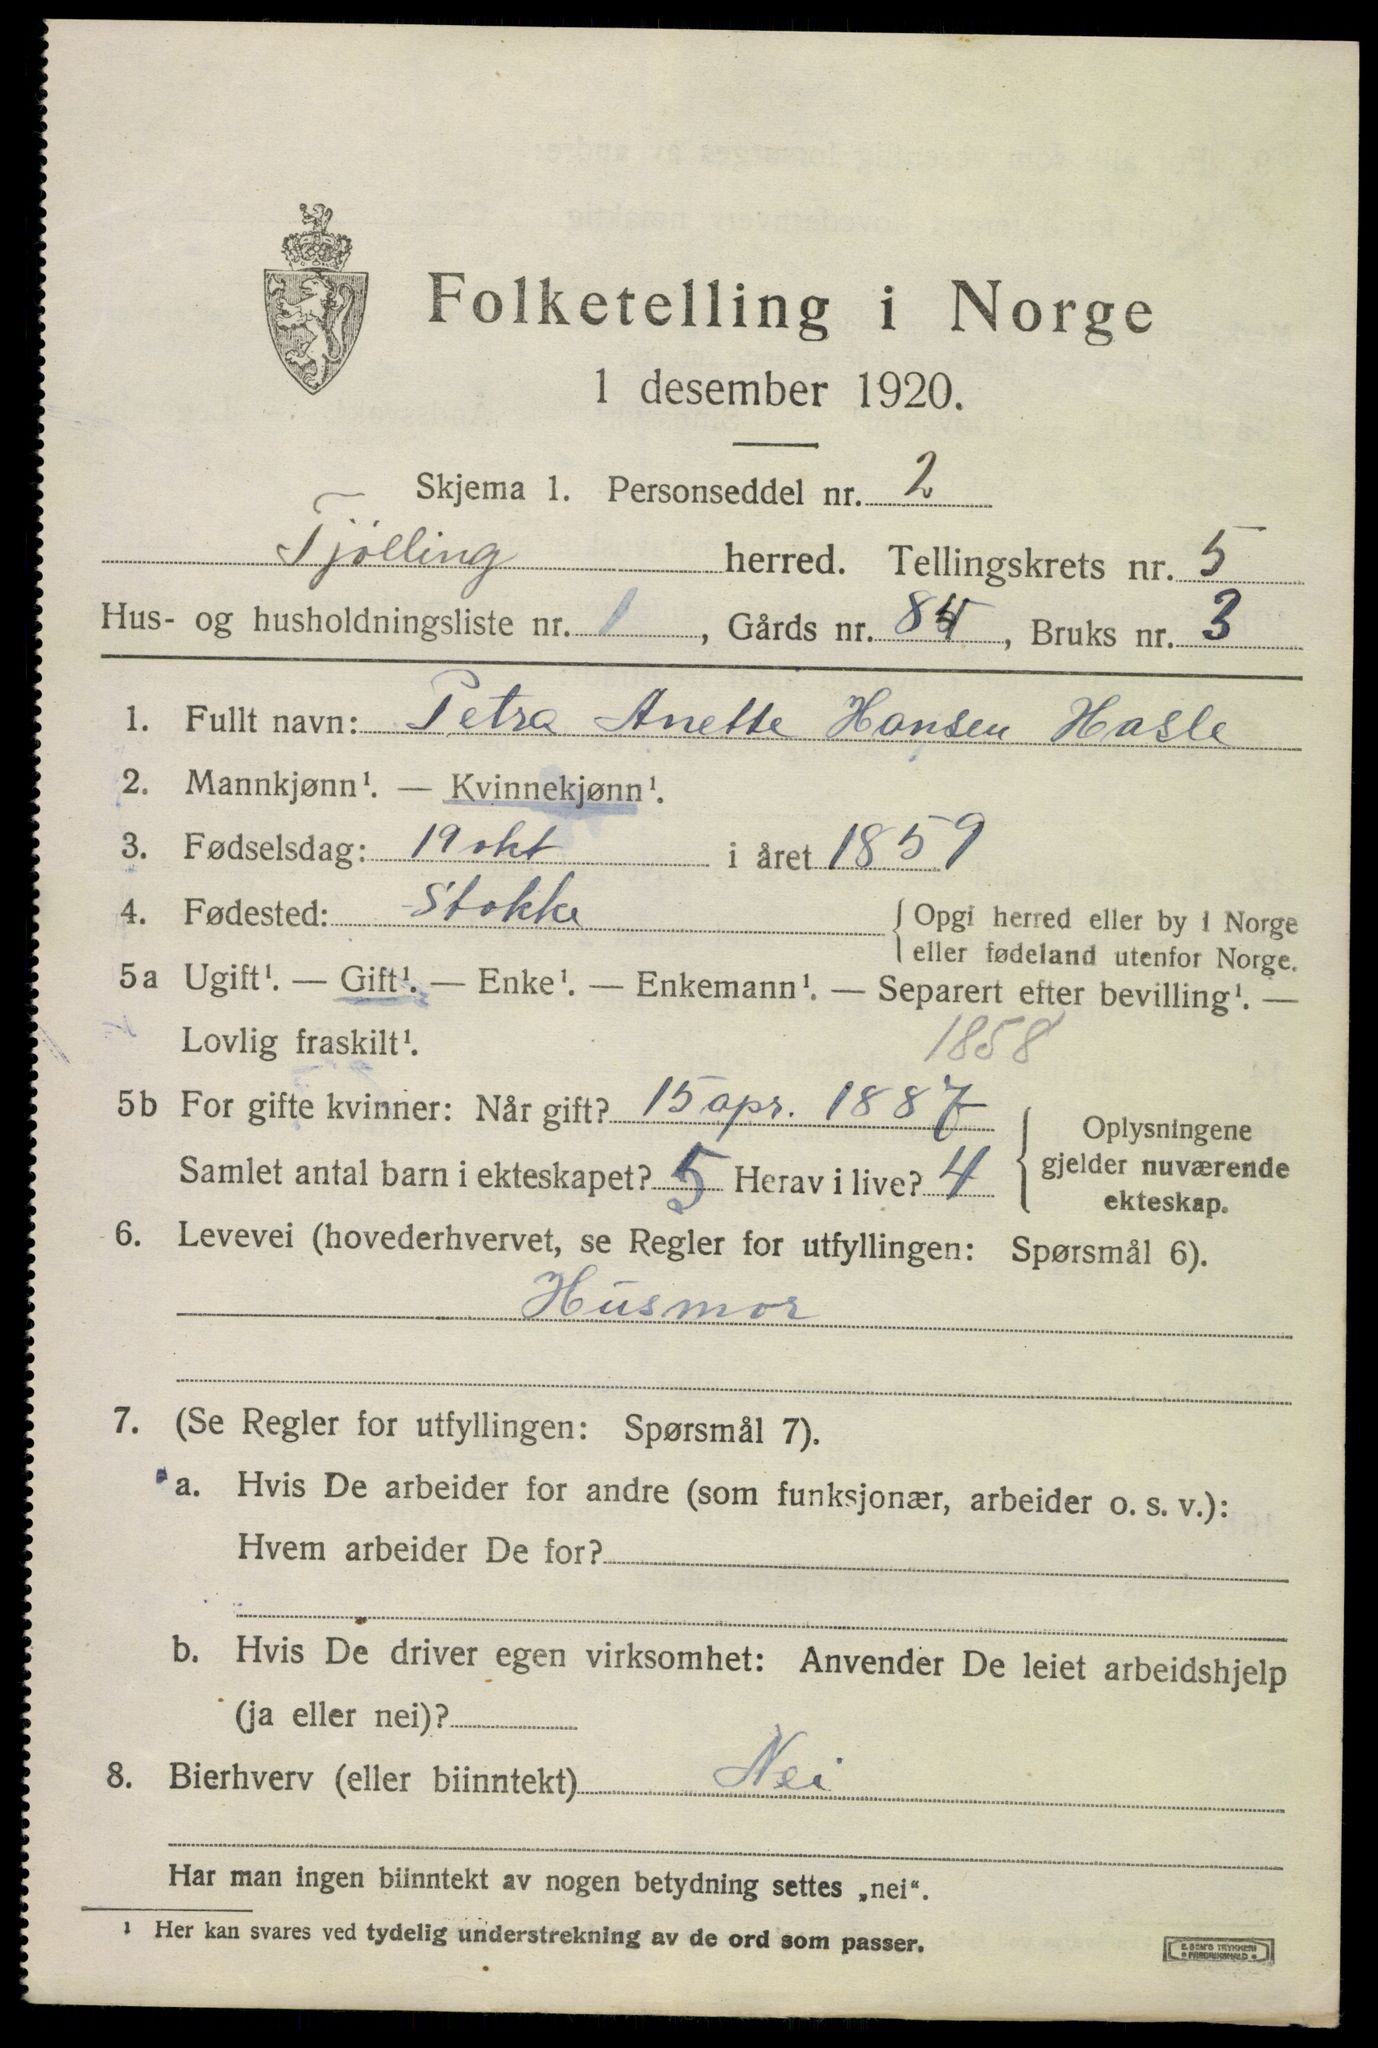 Folketelling i Norge
1 desember 1920.
Skjema 1. Personseddel nr. 2
Tjölling herred. Tellingskrets nr. 5
Hus- og husholdningsliste nr. 1, Gårds nr. 84, Bruks nr. 3
1. Fullt navn: Petra Anette Hansen Hasle
2. Mannkjønn¹. — Kvinnekjønn¹.
3. Fødselsdag: 19 okt i året 1859
4. Fødested: Stokke {Opgi herred eller by i Norge
eller fødeland utenfor Norge.
5a Ugift¹. — Gift¹. — Enke¹. — Enkemann¹. — Separert efter bevilling¹. —
Lovlig fraskilt¹. 1858
5b For gifte kvinner: Når gift? 15 apr. 1887
Samlet antal barn i ekteskapet? 5 Herav i live? 4
Oplysningene
gjelder nuværende
ekteskap.
6. Levevei (hovederhvervet, se Regler for utfyllingen: Spørsmål 6).
Husmor
7. (Se Regler for utfyllingen: Spørsmål 7).
a. Hvis De arbeider for andre (som funksjonær, arbeider o. s. v.):
Hvem arbeider De for?
b. Hvis De driver egen virksomhet: Anvender De leiet arbeidshjelp
(ja eller nei)?
8. Bierhverv (eller biinntekt) Nei
Har man ingen biinntekt av nogen betydning settes „nei“.
¹ Her kan svares ved tydelig understrekning av de ord som passer.
E. SEM'S TRYKKERI
FREDRIKSHALD